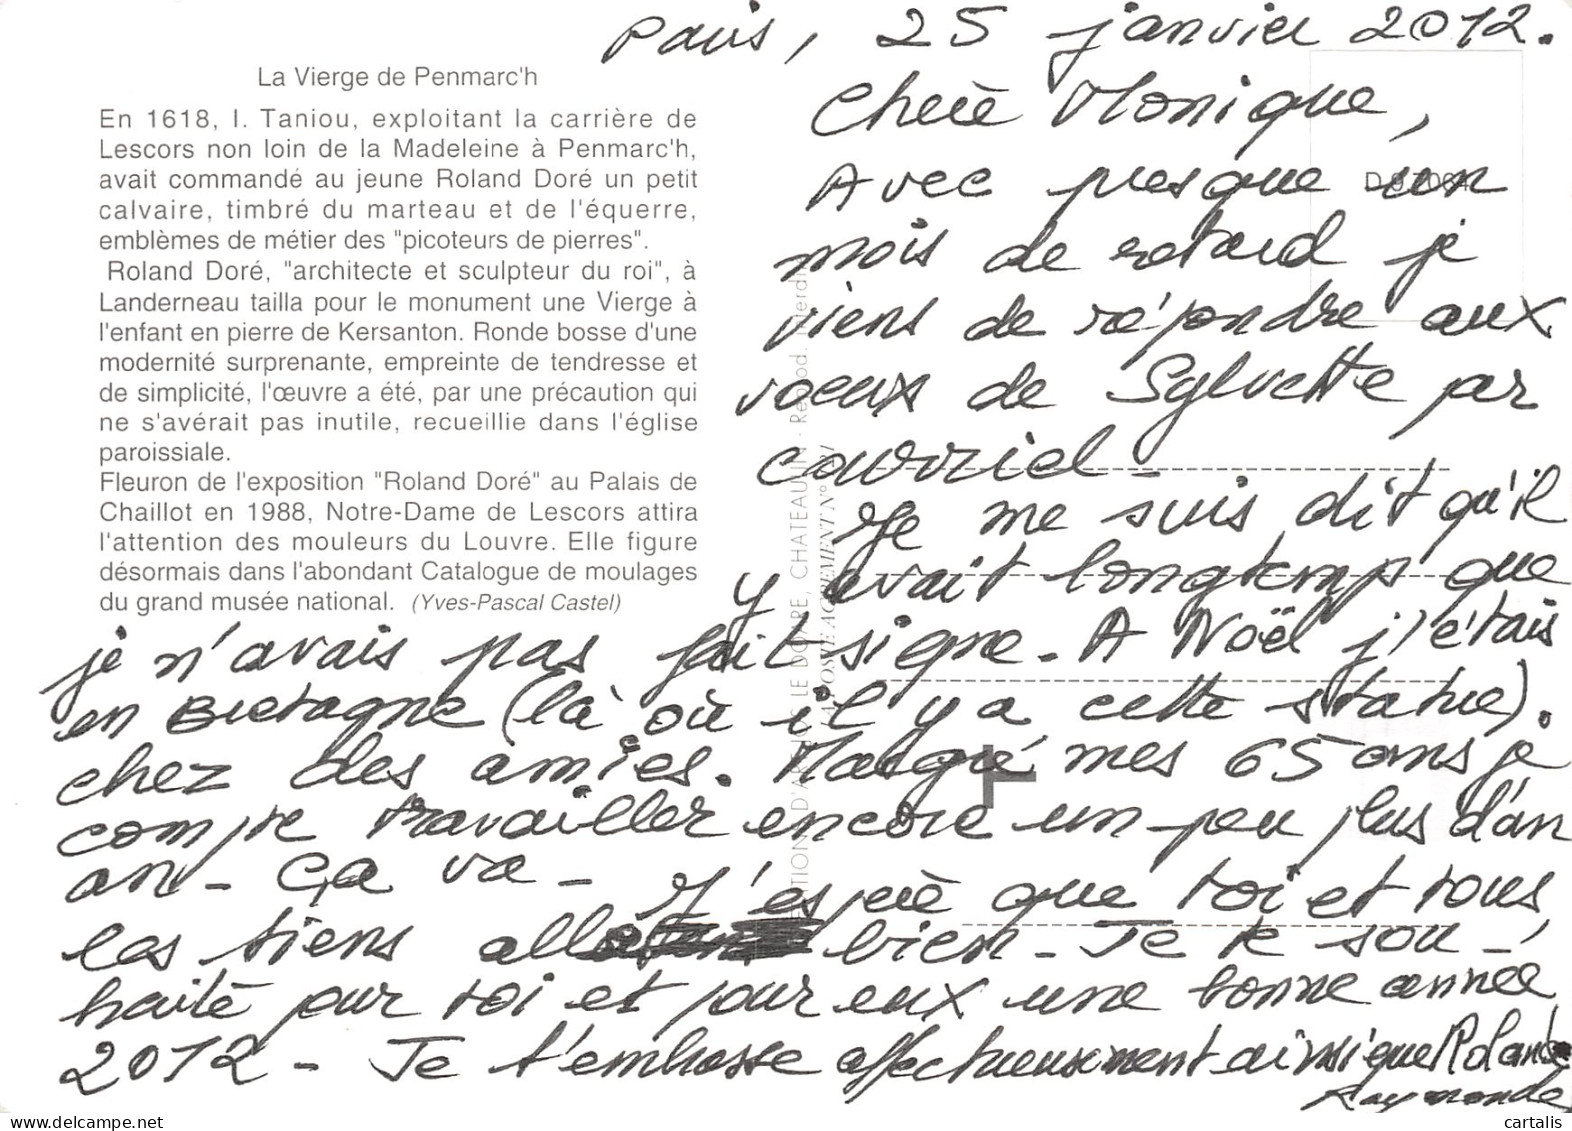 Paris, 25 janvier 2012.
La Vierge de Penmarc'h
En 1618, I. Taniou, exploitant la carrière de
Lescors non loin de la Madeleine à Penmarc'h,
avait commandé au jeune Roland Doré un petit
calvaire, timbré du marteau et de l'équerre,
emblèmes de métier des "picoteurs de pierres".
Roland Doré, "architecte et sculpteur du roi", à
Landerneau tailla pour le monument une Vierge à
l'enfant en pierre de Kersanton. Ronde bosse d'une
modernité surprenante, empreinte de tendresse et
de simplicité, l'œuvre a été, par une précaution qui
ne s'avérait pas inutile, recueillie dans l'église
paroissiale.
Fleuron de l'exposition "Roland Doré" au Palais de
Chaillot en 1988, Notre-Dame de Lescors attira
l'attention des mouleurs du Louvre. Elle figure
désormais dans l'abondant Catalogue de moulages
du grand musée national. (Yves-Pascal Castel)
Chère Monique,
Avec presque un
mois de retard je
viens de répondre aux
voeux de Sylvette par
courriel -
Je me suis dit qu'il
y avait longtemps que
je n'avais pas fait signe - A Noël j'étais
en Bretagne (là où il y a cette statue).
chez des amies. Malgré mes 65 ans je
compte travailler encore un peu plus d'an
an - ça va - J'espère que toi et tous
les tiens bien - Je te sou-
haite pour toi et pour eux une bonne année
2012 - Je t'embrasse affectueusement ainsi que Rolande
Raymonde
D'ART JOS LE DOARE, CHATEAULIN - Reprod. interdite
LA POSTE AGREMENT N°
cartalis